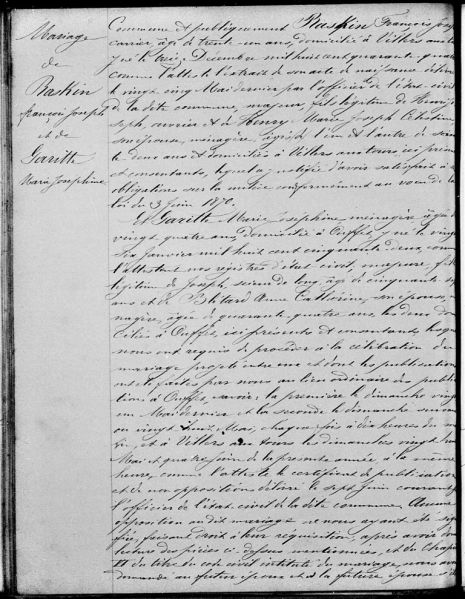 Mariage
de
Baskin
françois Joseph
et de
Garitte
Marie Josephine
Commune et publiquement Baskin François
carrier, âgé de trente un ans, domicilié à Villers aux
le treize Décembre mil huit cent quarante
comme l'atteste l'extrait de son acte de naissance délivré
le vingt cinq Mai dernier par l'officier de l'état civil
de la dite commune, majeur, fils légitime de
ouvrier et de Henry Marie Joseph
son épouse, ménagère, âgés l'un et l'autre de
deux ans et domiciliés à Villers aux tours ici présents
et consentants, lequel a justifié d'avoir satisfait à
obligations sur la milice conformément au vœu de la
loi du 3 Juin 1870.
Et Garitte Marie Josephine, ménagère âgée de
vingt quatre ans, domiciliée à Ouffet, y née le vingt
six Janvier mil huit cent cinquante deux, comme
l'attestent nos registres d'état civil, majeure, fille
légitime de Joseph, scieur de long, âgé de cinquante
ans et de Anne Catherine, son épouse,
âgée de quarante quatre ans, les deux
à Ouffet, ici présents et consentants, lesquels
nous ont requis de procéder à la célébration du
mariage projeté entre eux et dont les publications
ont été faites par nous au lieu ordinaire des
à Ouffet, savoir: la première le dimanche vingt
un Mai dernier et la seconde le dimanche suivant
vingt huit Mai, chaque fois à dix heures du
et à Villers aux tours les dimanches vingt huit
Mai et quatre Juin de la présente année à la même
heure, comme l'atteste le certificat de publication
et de non opposition délivré le sept Juin courant
l'officier de l'état civil de la dite commune. Aucune
opposition au dit mariage ne nous ayant été
faisant droit à leur réquisition, après avoir donné
lecture des pièces ci-dessus mentionnées, et du Chapitre
VI du titre du code civil intitulé du mariage, nous avons
demandé au futur époux et à la future épouse s'ils